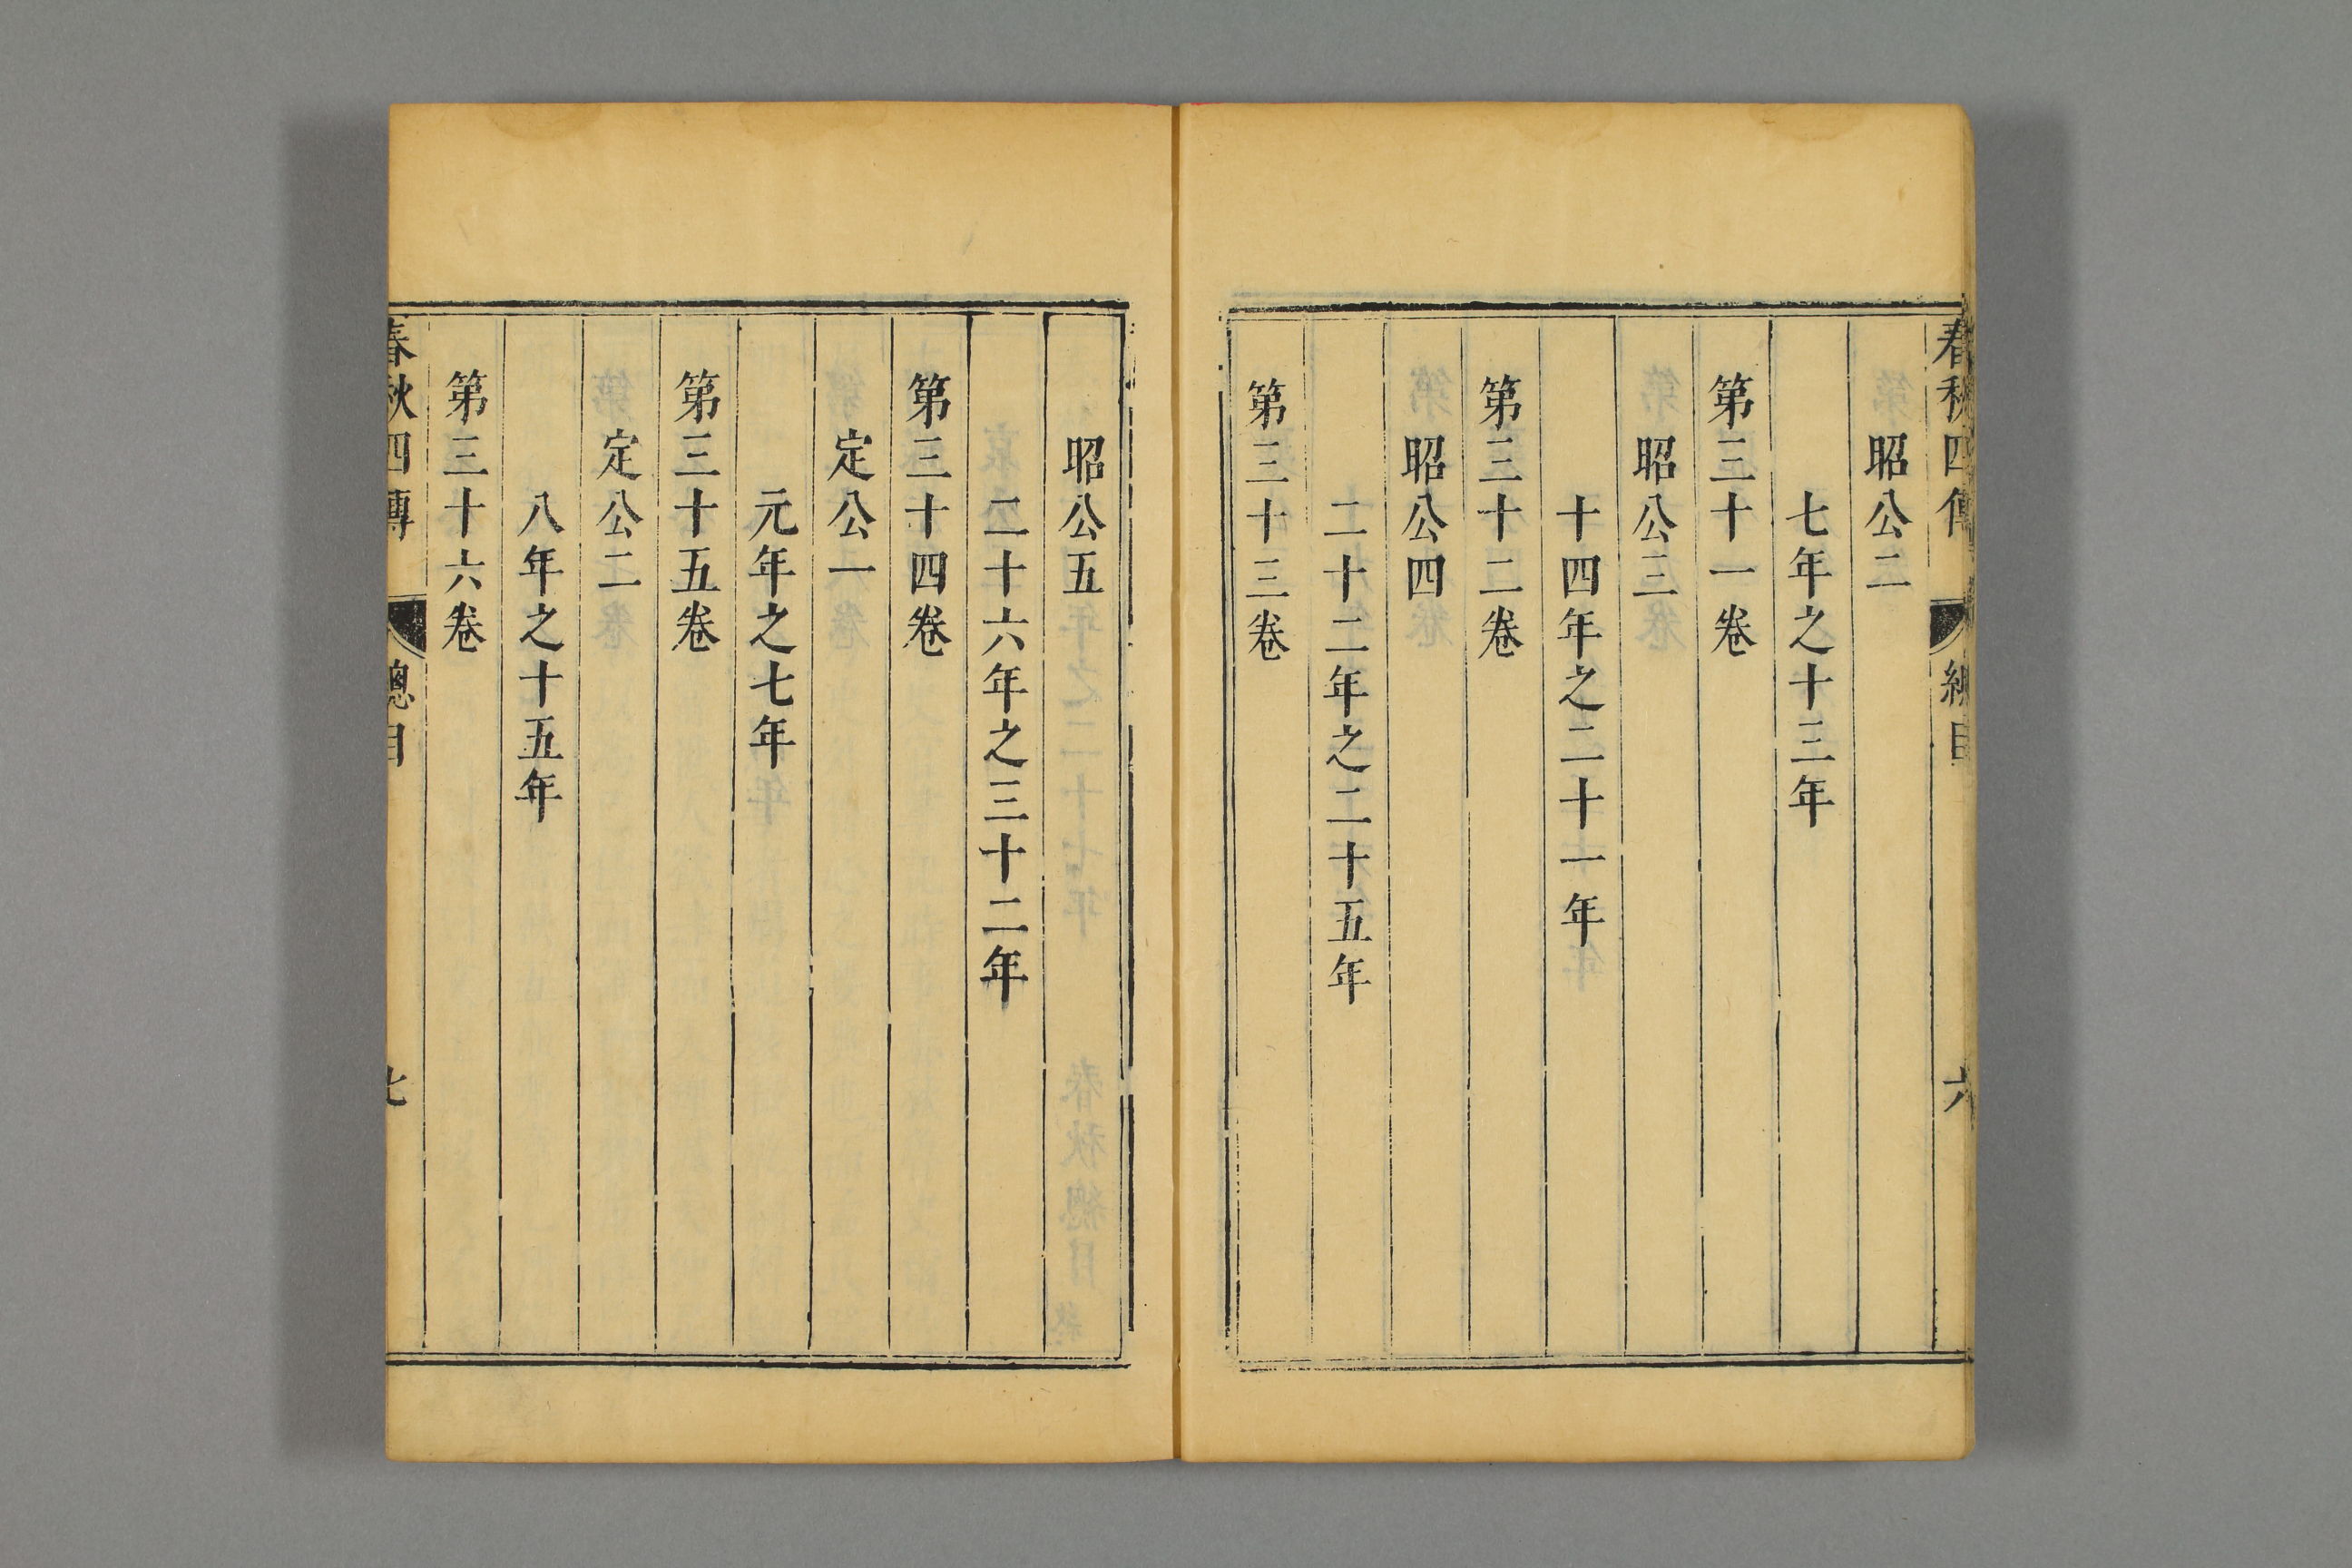 春秋四傳 總目 六
昭公二
七年之十三年
第三十一卷
昭公三
十四年之二十一年
第三十二卷
昭公四
二十二年之二十五年
第三十三卷
昭公五
二十六年之三十二年
第三十四卷
定公一
元年之七年
第三十五卷
定公二
八年之十五年
第三十六卷
春秋四傳 總目 七